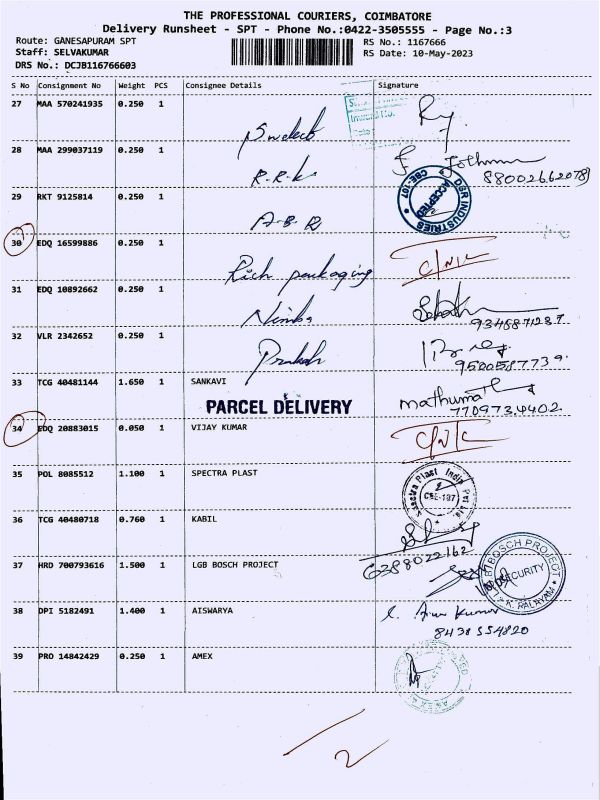 THE PROFESSIONAL COURIERS, COIMBATORE
Delivery Runsheet - SPT - Phone No.:0422-3505555 - Page No.:3
Route: GANESAPURAM SPT
RS No.: 1167666
Staff: SELVAKUMAR
RS Date: 10-May-2023
DRS No.: DCJB116766603
S No Consignment No Weight PCS Consignee Details Signature
27 MAA 570241935 0.250 1
28 MAA 299037119 0.250 1
R.R.K
29 RKT 9125814 0.250 1
A.B.R
DSR INDUSTRIES
ACCEPTED
CBE-107
30 EDQ 16599886 0.250 1
Rich packaging C/N/C
31 EDQ 10892662 0.250 1
Nimba
32 VLR 2342652 0.250 1
Prakash
33 TCG 40481144 1.650 1 SANKAVI
PARCEL DELIVERY
Mathumathi
7709734402
34 EDQ 20883015 0.050 1 VIJAY KUMAR C/N/C
35 POL 8085512 1.100 1 SPECTRA PLAST
Spectra Plast India Pvt Ltd
CBE-107
36 TCG 40480718 0.760 1 KABIL
6388022162
37 HRD 700793616 1.500 1 LGB BOSCH PROJECT
SECURITY
38 DPI 5182491 1.400 1 AISWARYA
Arun Kumar
8438554820
39 PRO 14842429 0.250 1 AMEX
2